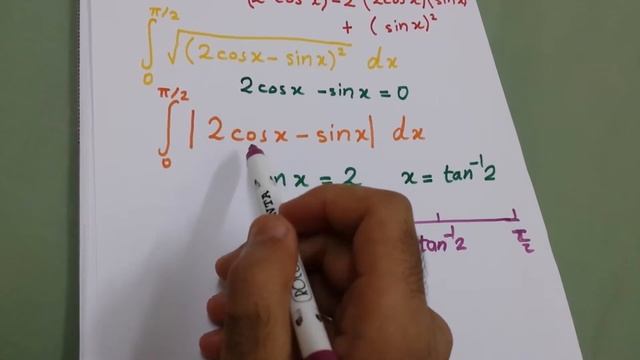 (2cosx)²-2(2cosx)(sinx)
+ (sinx)²
∫₀^(π/2) √((2cosx - sinx)²) dx
2cosx - sinx = 0
∫₀^(π/2) |2cosx - sinx| dx
x = 2   x = tan⁻¹2
tan⁻¹2   π/2